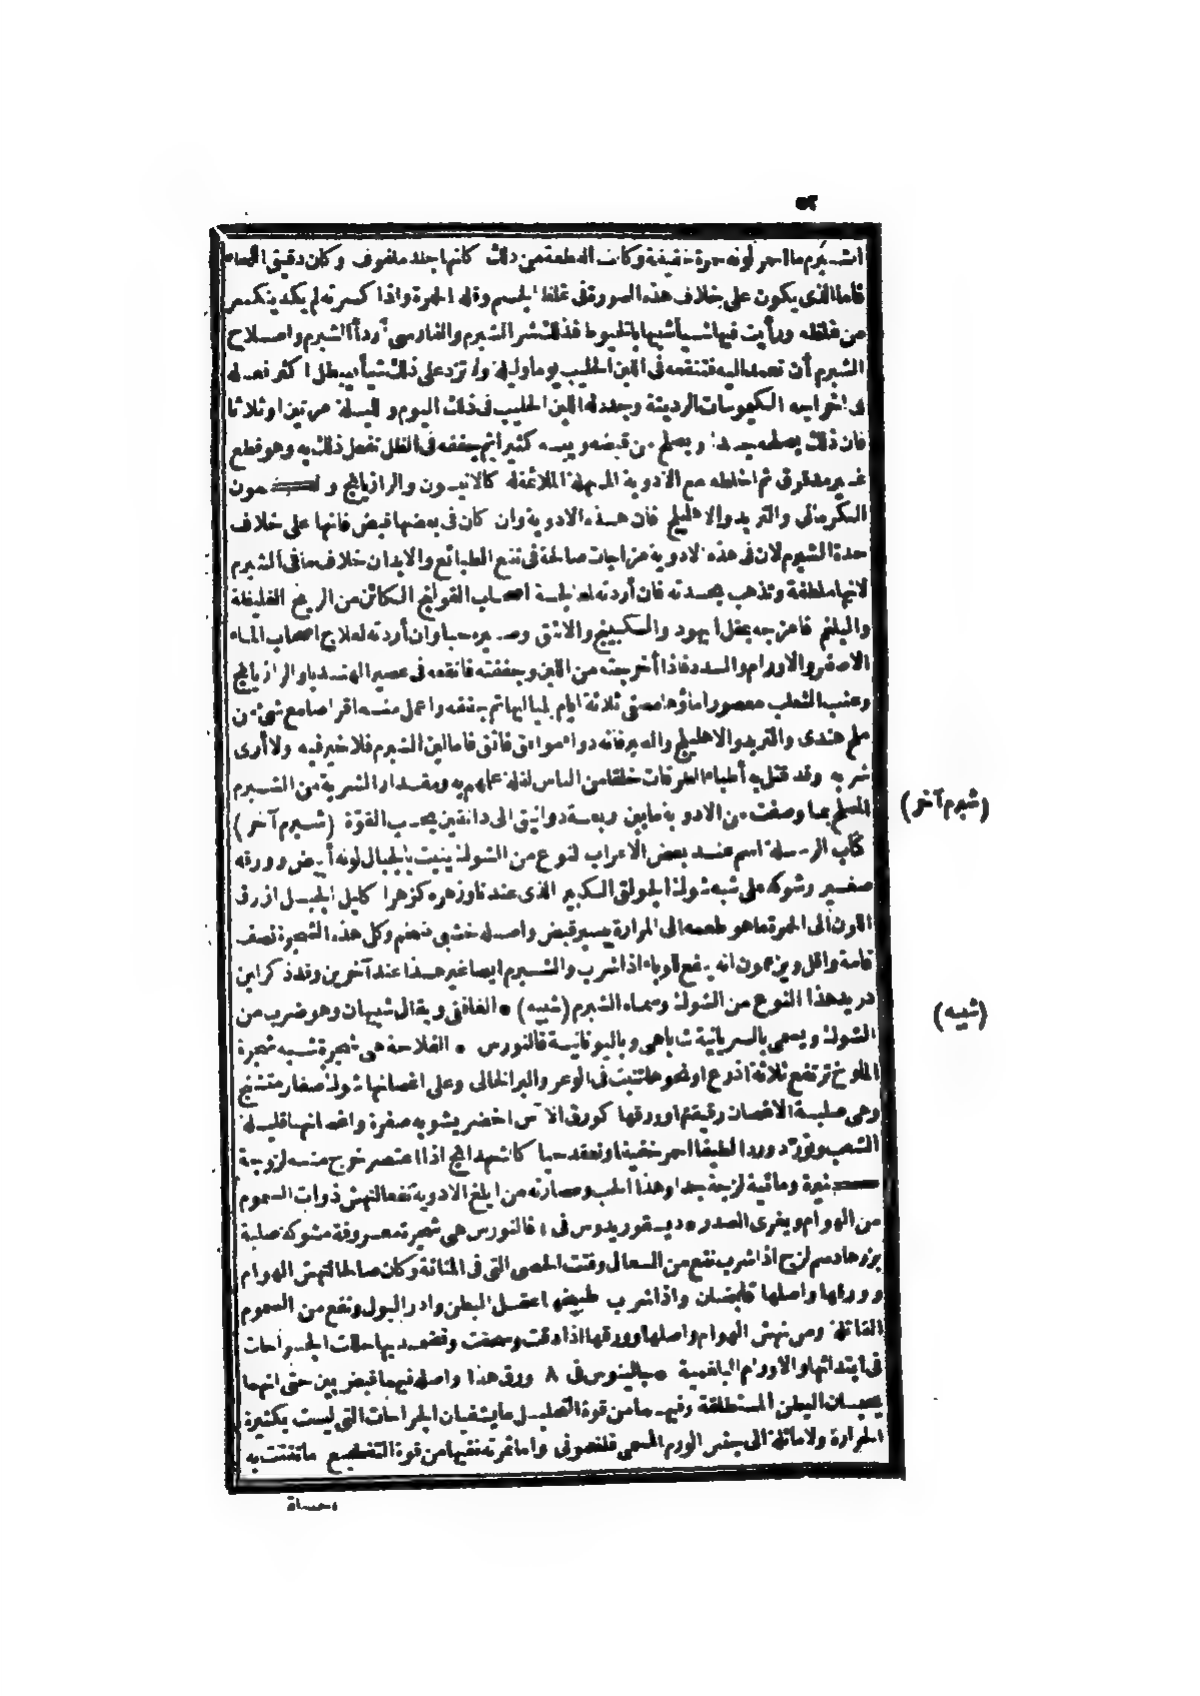 ٥٢
الشبرم ما احمر لونه حمرة خفيفة وكانت القطعة من ذلك كانها جلد ملفوف وكان دقيق اللحاء
فاما الذى يكون على خلاف هذه الصورة فى غلظ الجسم وقلة الحمرة واذا كسرته لم يكد ينكسر
من غلظه ورأيت فيها شيأ شبيها بالخيوط فذلك شر الشبرم والفارسى أردأ الشبرم واصلاح
الشبرم أن تعمد اليه فتنقعه فى اللبن الحليب يوما وليلة ولا تزد على ذلك شيأ يبطل اكثر فعله
فى اخراجه الكيموسات الرديئة وجدد له اللبن الحليب فى ذلك اليوم والليلة مرتين او ثلاثا
فان ذلك يصلحه جدا ويصلح من قبضه ويبسه كثيرا ثم يجففه فى الظل تفعل ذلك به وهو قطع
غير مدقوق ثم اخلطه مع الادوية المسهلة الملائمة له كالانيسون والرازيانج والكمون
الكرمانى والتربد والاهليلج فان هذه الادوية وان كان فى بعضها قبض فانها على خلاف
حدة الشبرم لان فى هذه الادوية مزاجات صالحة فى نفع الطبائع والابدان خلاف ما فى الشبرم
لانها ملطفة وتذهب بحدته فان أردته لمعالجة اصحاب القولنج الكائن من الريح الغليظة
والبلغم فامزجه بمقل اليهود والسكبينج والاشق وصيره حبا وان أردته لعلاج اصحاب الماء
الاصفر والاورام والسدد فاذا أخرجته من اللبن وجففته فانقعه فى عصير الهندبا والرازيانج
وعنب الثعلب معصورا ماؤها مصفى ثلاثة ايام بلياليها ثم جففه واعمل منه اقراصا مع شئ من
ملح هندى والتربد والاهليلج والصبر فانه دواء موافق فائق فاما لبن الشبرم فلا خير فيه ولا أرى
شربه وقد قتل به أطباء الطرقات خلقا من الناس لقلة علمهم به ومقدار الشربة من الشبرم
المصلح بما وصفت من الادوية ما بين اربعة دوانيق الى دانقين بحسب القوة (شبرم آخر)
كتاب الرحلة اسم عند بعض الاعراب لنوع من الشوك ينبت بالجبال لونه أبيض وورقه
صغير وشوكه على شبه شوك الجولق الكبير الذى عندنا وزهره كزهر اكليل الجبل ازرق
اللون الى الحمرة ما هو طعمه الى المرارة بيسير قبض واصله خشبى ضخم وكل هذه الشجرة نصف
قامة واقل ويزعمون انه ينفع الوباء اذا شرب والشبرم ايضا غير هذا عند آخرين وقد ذكر ابن
دريد هذا النوع من الشوك وسماه الشبرم (شبيه) * الغافقى ويقال شبيهان وهو ضرب من
الشوك ويسمى بالسريانية شباهى وباليونانية فالنورس * الفلاحة هى شجرة تشبه شجرة
الملوخ ترتفع ثلاثة اذرع او نحوها تنبت فى الوعر والبر الخالى وعلى اغصانها شوك صغار متشنج
وهى صلبة الاغصان رقيقتها وورقها كورق الآس اخضر يشوبه صفرة واغصانها قليلة
الشعب وتورد وردا لطيفا احمر خفيفا وتعقد حبا كالشهدانج اذا اعتصر خرج منه لزوجة
كثيرة ومائية لزجة جدا وهذا الحب وعصارته من ابلغ الادوية نفعا لنهش ذوات السموم
من الهوام ويغرى الصدر * ديسقوريدوس فى ١ فالنورس هى شجرة معروفة مشوكة صلبة
بزرها دسم لزج اذا شرب نفع من السعال وفتت الحصى التى فى المثانة وكان صالحا لنهش الهوام
وورقها واصلها قابضان واذا شرب طبيخها اعقل البطن وادر البول ونفع من السموم
القاتلة ومن نهش الهوام واصلها وورقها اذا دقت وسحقت وتضمد بها حللت الجراحات
فى ابتدائها والاورام البلغمية * جالينوس فى ٨ ورق هذا واصله فيهما قبض بين حتى انهما
يحبسان البطن المستطلقة وفيهما من قوة التحليل ما يشفيان الجراحات التى ليست بكثيرة
الحرارة ولا مائلة الى جنس الورم المسمى فلغمونى واما ثمرته ففيها من قوة التقطيع ما تفتت به
(شبرم آخر)
(شبيه)
حصاة